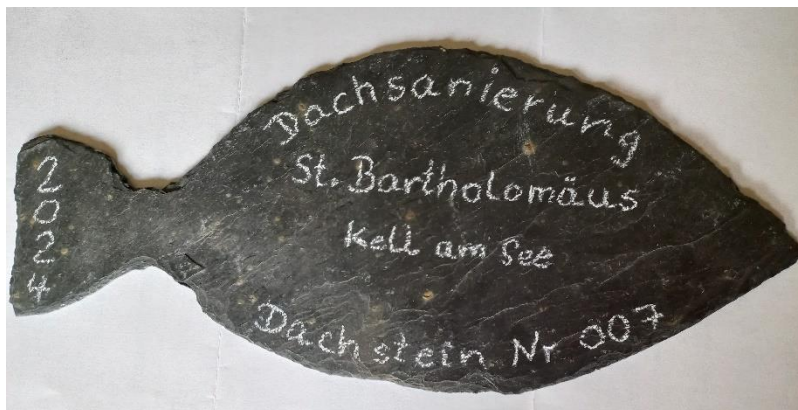 2024
Dachsanierung
St. Bartholomäus
Kell am See
Dachstein Nr 007